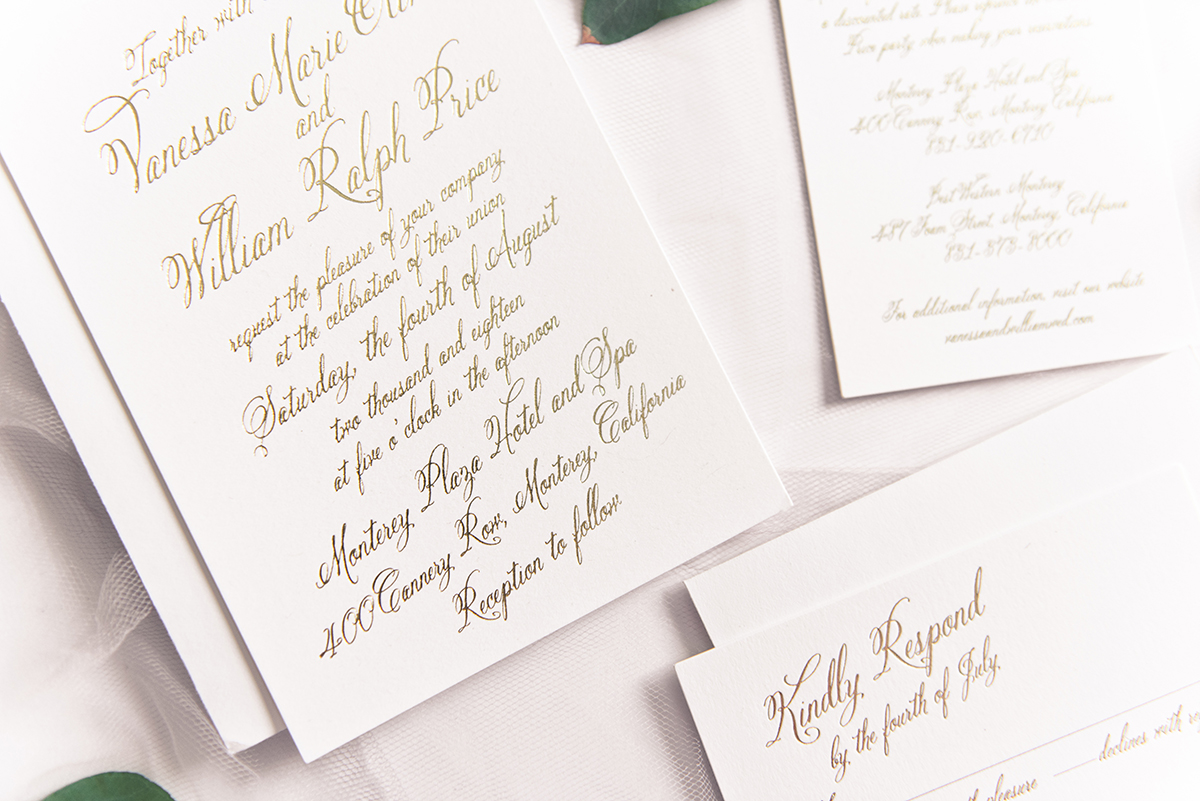 Together with
Vanessa Marie
and
William Ralph Price
request the pleasure of your company
at the celebration of their union
Saturday, the fourth of August
two thousand and eighteen
at five o'clock in the afternoon
Monterey Plaza Hotel and Spa
400 Cannery Row, Monterey, California
Reception to follow
a discounted rate. Please
Price party when making your reservations.
Monterey Plaza Hotel and Spa
400 Cannery Row, Monterey, California
Best Western Monterey
487 Foam Street, Monterey, California
For additional information, visit our website
Kindly Respond
by, the fourth of July,
declines with
pleasure